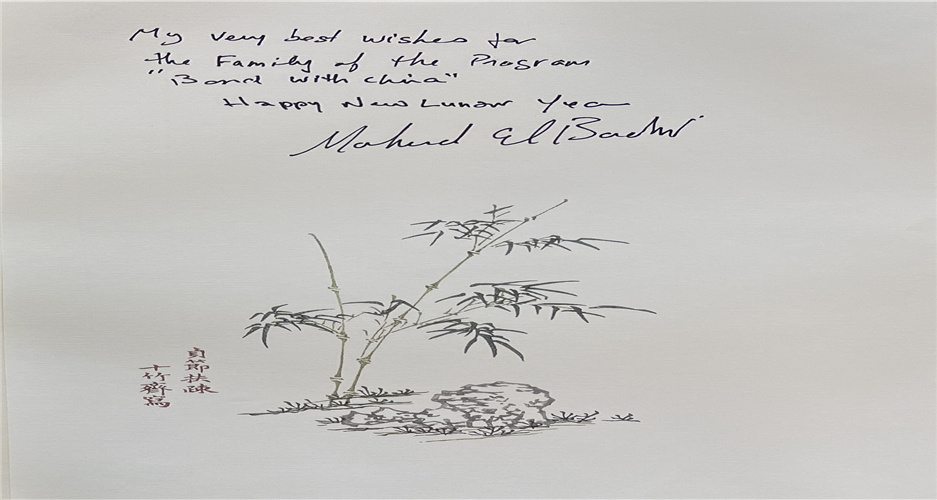 My very best wishes for
the Family of the Program
"Bond with China"
Happy New Lunar Year
El Badri
貞節扶疎
十竹齋寫